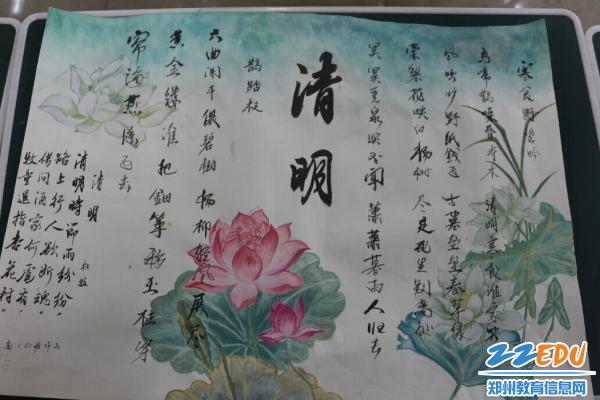 寒食野望吟
乌啼鹊噪昏乔木 清明寒食谁家哭
风吹旷野纸钱飞 古墓垒垒春草绿
棠梨花映白杨树 尽是死生别离处
冥冥重泉哭不闻 萧萧暮雨人归去
清明
鹊踏枝
六曲阑干偎碧树 杨柳轻风展尽
黄金缕 谁把钿筝移玉柱 穿
帘海燕飞去
清明
杜牧
清明时节雨纷纷
路上行人欲断魂
借问酒家何处有
牧童遥指杏花村
ZZEDU
郑州教育信息网